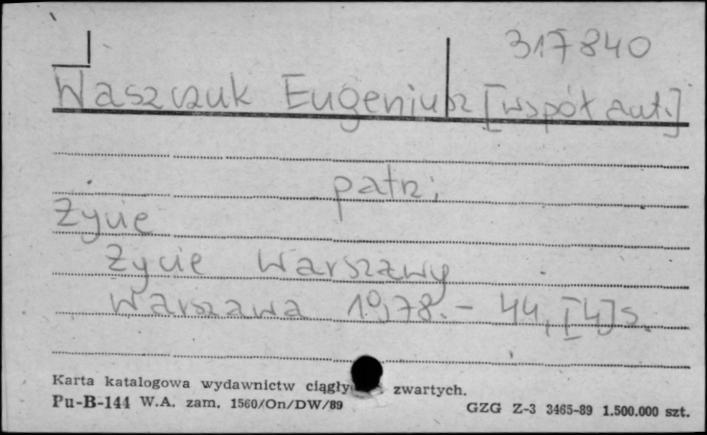 317840
Waszczuk Eugeniusz [współaut.]
patrz:
Życie
Życie Warszawy
Warszawa 1978. - 44, [4] s.
Karta katalogowa wydawnictw ciągły zwartych.
Pu-B-144 W.A. zam. 1560/On/DW/89
GZG Z-3 3465-89 1.500.000 szt.